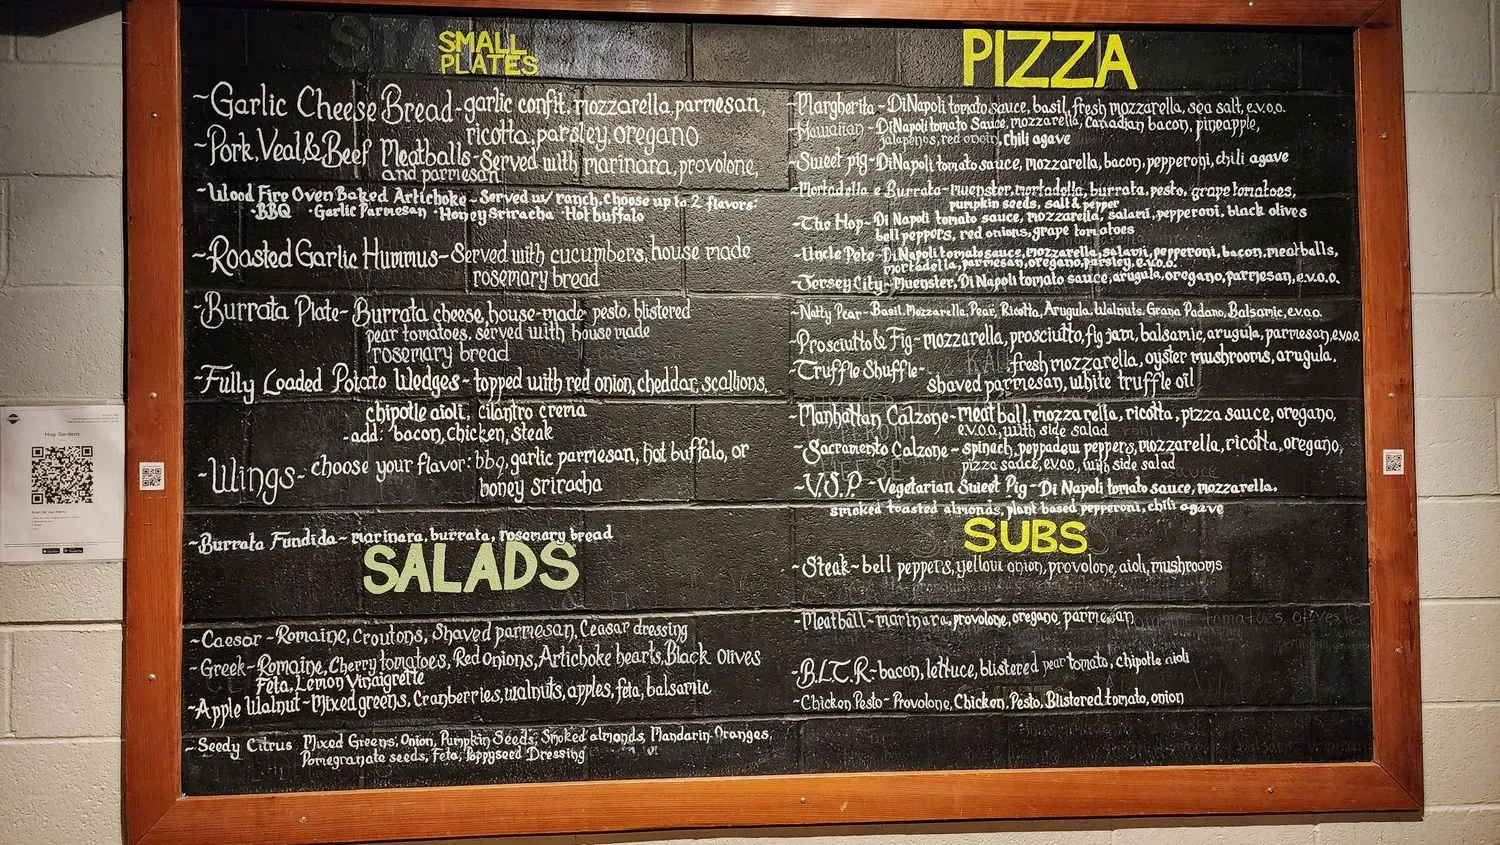 SMALL
PLATES
~Garlic Cheese Bread-garlic confit, mozzarella, parmesan,
ricotta, parsley, oregano
~Pork, Veal, & Beef Meatballs-Served with marinara, provolone,
and parmesan
~Wood Fire Oven Baked Artichoke~ Served w/ ranch. Choose up to 2 flavors:
·BBQ ·Garlic Parmesan ·Honey Sriracha ·Hot buffalo
~Roasted Garlic Hummus-Served with cucumbers, house made
rosemary bread
~Burrata Plate-Burrata cheese, house-made pesto, blistered
pear tomatoes, served with house made
rosemary bread
~Fully Loaded Potato Wedges-topped with red onion, cheddar, scallions,
chipotle aioli, cilantro crema
-add: bacon, chicken, steak
~Wings-choose your flavor: bbq, garlic parmesan, hot buffalo, or
honey sriracha
~Burrata Fundida~ marinara, burrata, rosemary bread
SALADS
~Caesar ~Romaine, Croutons, Shaved parmesan, Ceasar dressing
~Greek-Romaine, Cherry tomatoes, Red onions, Artichoke hearts, Black Olives
Feta, Lemon Vinaigrette
~Apple Walnut~Mixed greens, Cranberries, walnuts, apples, feta, balsamic
~Seedy Citrus Mixed Greens, Onion, Pumpkin Seeds, Smoked almonds, Mandarin Oranges,
Pomegranate seeds, Feta, Poppyseed Dressing
PIZZA
~Margherita~DiNapoli tomato sauce, basil, fresh mozzarella, sea salt, e.v.o.o.
~Hawaiian~DiNapoli tomato Sauce, mozzarella, Canadian bacon, pineapple,
jalapeños, red onoin, chili agave
~Sweet pig~DiNapoli tomato sauce, mozzarella, bacon, pepperoni, chili agave
~Mortadella e Burrata~muenster, mortadella, burrata, pesto, grape tomatoes,
pumpkin seeds, salt & pepper
~The Hop-Di Napoli tomato sauce, mozzarella, salami, pepperoni, black olives
bell peppers, red onions, grape tomatoes
~Uncle Pete-DiNapoli tomato sauce, mozzarella, salami, pepperoni, bacon, meatballs,
mortadella, parmesan, oregano, parsley, e.v.o.o.
~Jersey City~Muenster, Di Napoli tomato sauce, arugula, oregano, parmesan, e.v.o.o.
~Natty Pear~Basil, Mozzarella, Pear, Ricotta, Arugula, Walnuts, Grana Padano, Balsamic, e.v.o.o.
~Prosciutto & Fig-mozzarella, prosciutto, fig jam, balsamic, arugula, parmesan, e.v.o.o.
~Truffle Shuffle- fresh mozzarella, oyster mushrooms, arugula,
shaved parmesan, white truffle oil
~Manhattan Calzone-meatball, mozzarella, ricotta, pizza sauce, oregano,
e.v.o.o, with side salad
~Sacramento Calzone ~spinach, peppadew peppers, mozzarella, ricotta, oregano,
pizza sauce, e.v.o.o, with side salad
~V.S.P ~Vegetarian Sweet Pig ~Di Napoli tomato sauce, mozzarella.
smoked toasted almonds, plant based pepperoni, chili agave
SUBS
~Steak~bell peppers, yellow onion, provolone, aioli, mushrooms
~Meatball~marinara, provolone, oregano, parmesan
~B.L.T.R.-bacon, lettuce, blistered pear tomato, chipotle aioli
~Chicken Pesto~ Provolone, Chicken, Pesto, Blistered tomato, onion
Hop Gardens
Scan for our menu